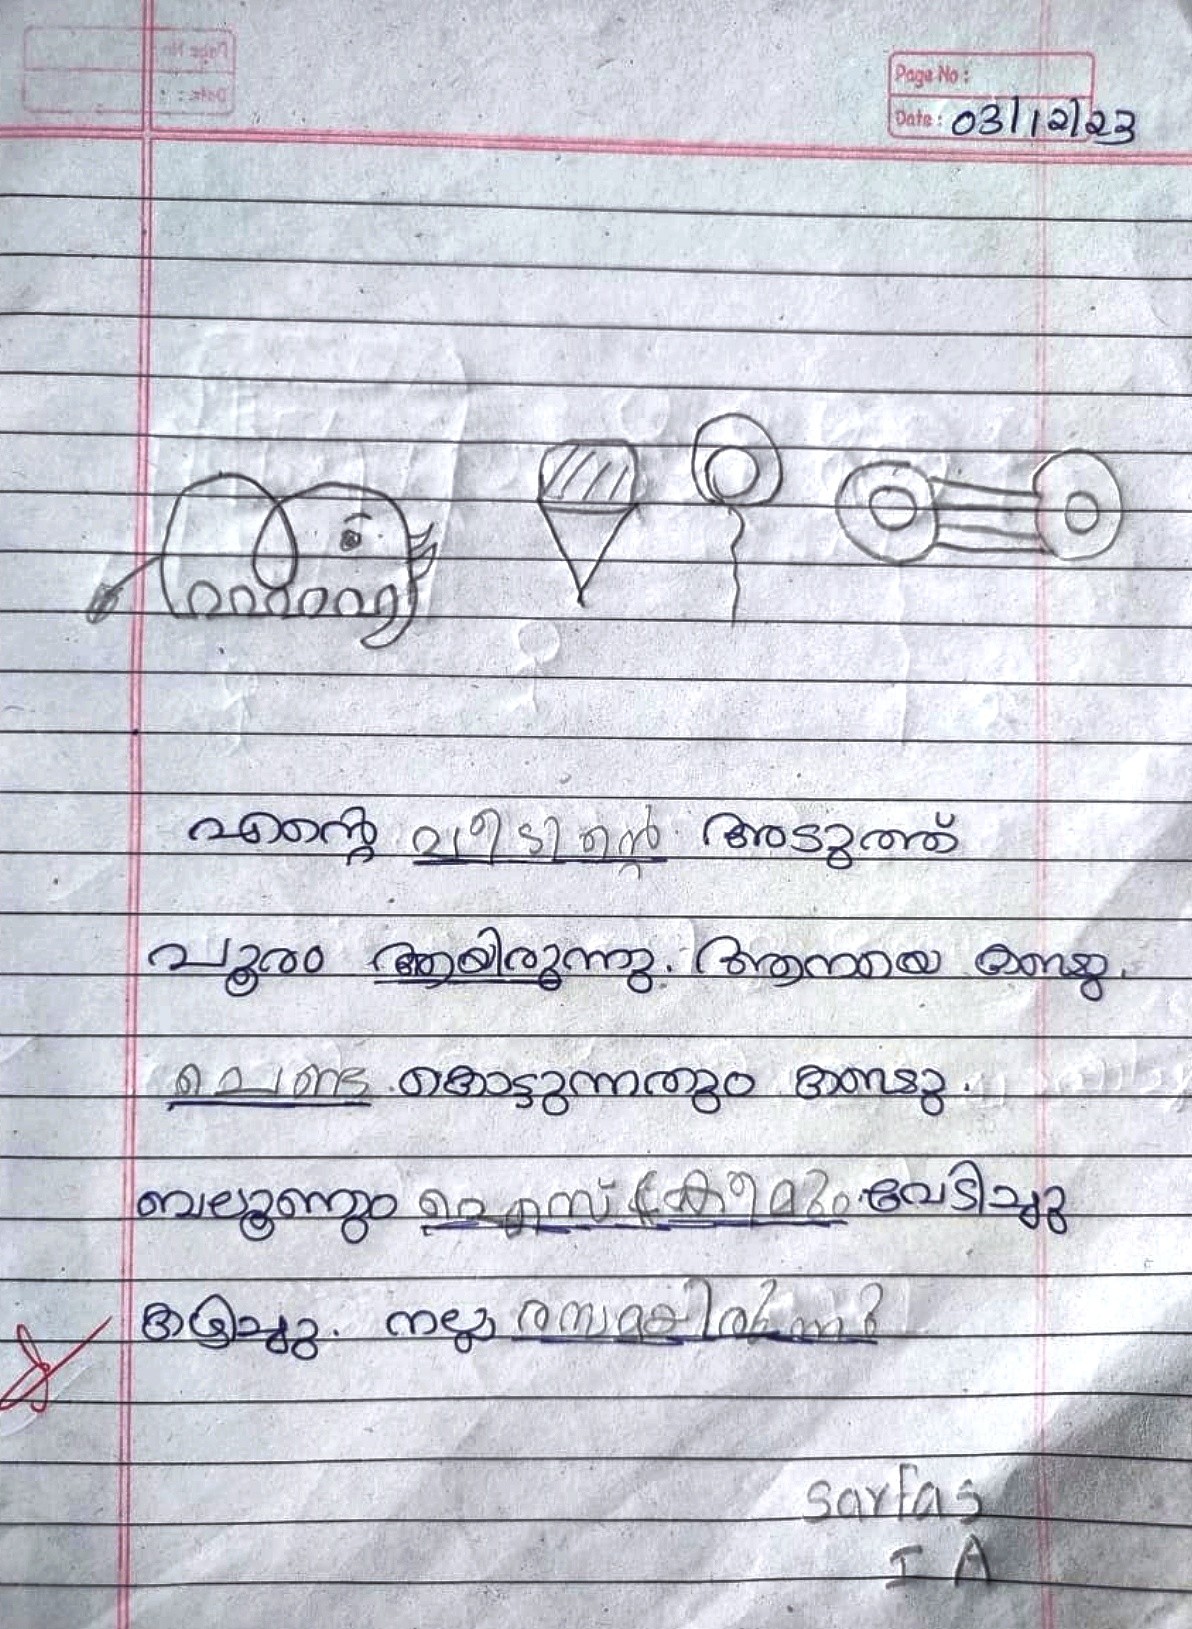 Page No :
Date : 03/12/23
എന്റെ വീടിന്റെ അടുത്ത്
പൂരം ആയിരുന്നു. ആനയെ കണ്ടു.
ചെണ്ട കൊട്ടുന്നതും കണ്ടു.
ബലൂണും ഐസ്ക്രീമും വേടിച്ചു
കളിച്ചു. നല്ല
Sarfas
I A